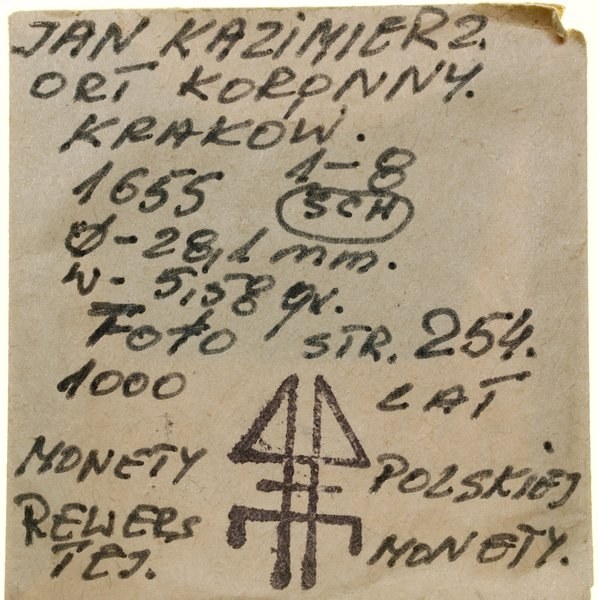 JAN KAZIMIERZ.
ORT KORONNY.
KRAKÓW.
1655 1-8
SCH
Ø-28,1 mm.
W- 5,58 gr.
Foto STR. 254.
1000 LAT
MONETY POLSKIEJ
REWERS MONETY.
TEJ.